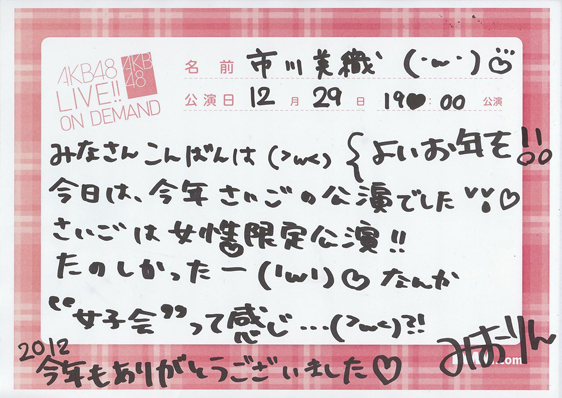 AKB48
LIVE!!
ON DEMAND
AKB
48
名前 市川美織 (・ω・)
公演日 12月29日 19:00 公演
みなさんこんばんは (>ω<) { よいお年を!!
今日は、今年さいごの公演でした♡
さいごは女性限定公演!!
たのしかったー ('ω')♡ なんか
“女子会”って感じ…(>ω<)?!
2012
今年もありがとうございました♡
みおりん
.com